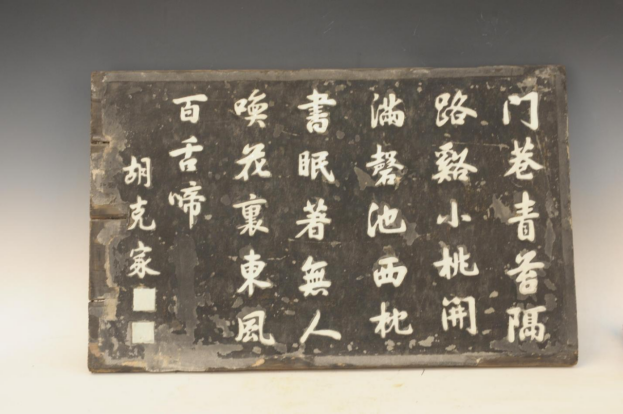 门巷青苔隔
路谿小桃開
满磬池西枕
書眠著無人
喚花裏東風
百舌啼
胡克家